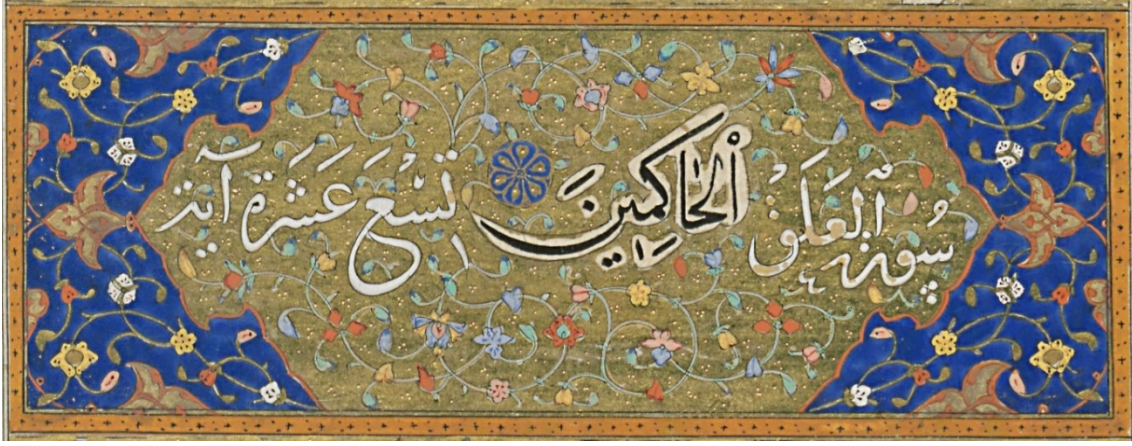 سُورَةُ الْعَلَقِ الْحَاكِمِينَ تِسْعَ عَشْرَةَ آيَة